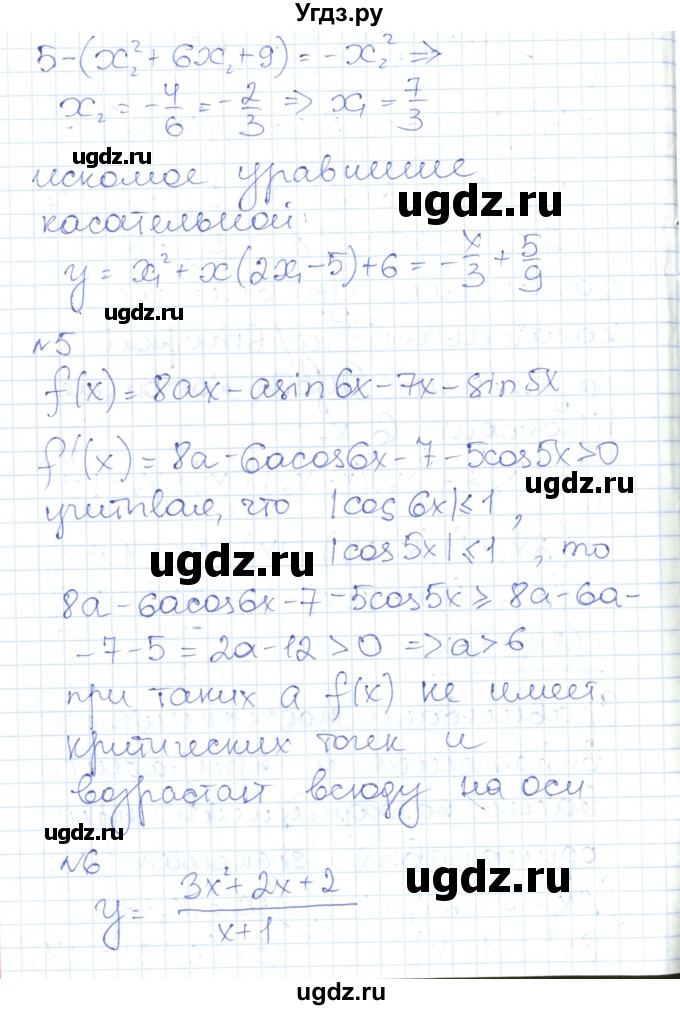 Угдз.ру
5-(x₂²+6x₂+9)=-x₂² ⇒
x₂=-4/6=-2/3 ⇒ x₁=7/3
ugdz.ru
искомое уравнение
ugdz.ru
касательной:
y=x₁²+x(2x₁-5)+6=-x/3+5/9
ugdz.ru
№5
f(x)=8ax-asin6x-7x-sin5x
f'(x)=8a-6acos6x-7-5cos5x>0
ugdz.ru
учитывая, что |cos6x|≤1,
ugdz.ru
|cos5x|≤1, то
8a-6acos6x-7-5cos5x≥8a-6a-
-7-5=2a-12>0 ⇒a>6
при таких a f(x) не имеет
критических точек и
возрастает всюду на оси
ugdz.ru
№6
ugdz.ru
y=(3x²+2x+2)/(x+1)
ugdz.ru